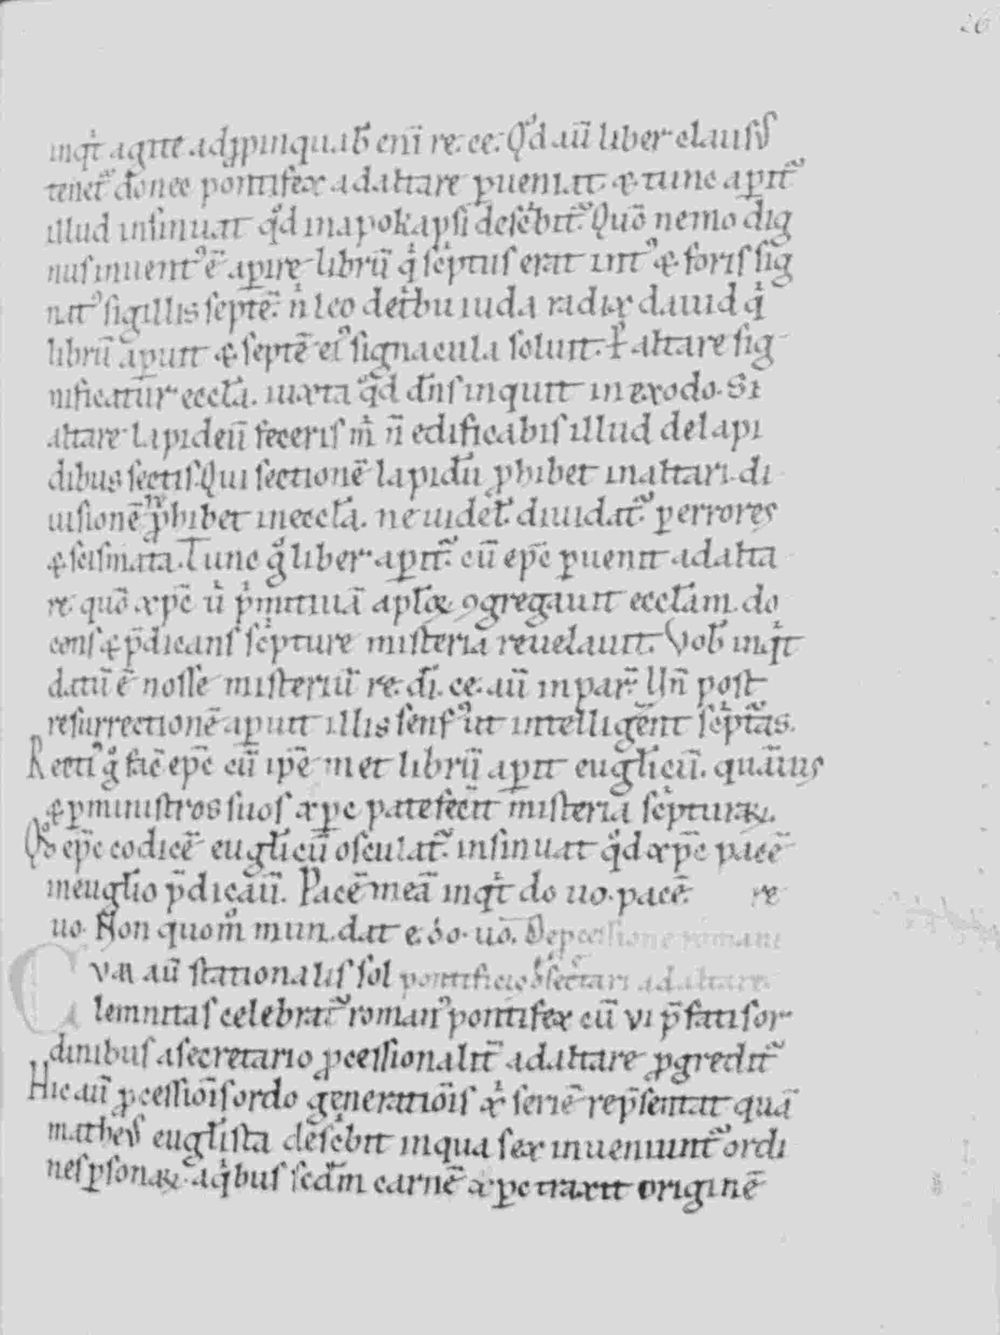 26
inq̇t agite adꝓpinquab̄ eni̅ re. ce. Qd̓ au̅ liber clausꝰ
tenet᷑ donec pontifex ad altare ꝑueniat. & tunc aꝑit᷑
illud insinuat qd̓ in apokapsi desc̓bit᷑. Quo̅ nemo dig
nus inuentꝰ e̅ aꝑire libru̅ q̇ sc̓ptus erat intꝰ & foris sig
natꝰ sigillis septe̅. n̓ leo de tribu iuda radix dauid q̇
libru̅ aꝑuit & septe̅ eiꝰ signacula soluit. P altare sig
nificatur eccl̅a. iuxta qd̓ dn̅s inquit in exodo. Si
altare lapideu̅ feceris m̓ n̅ edificabis illud de lapi
dibus sectis. Qui sectione̅ lapidu̅ ꝓhibet in altari. di
uisione̅ ꝓhibet in eccl̅a. ne uidel̅. diuidat᷑ ꝑ errores
& scismata. Tunc g̊ liber aꝑit᷑. cu̅ ep̅c ꝑuenit ad alta
re quo̅ xp̅c u̓ p̓mitiua̅ apl̅oꝝ ꝯgregauit eccl̅am. do
cens & p̅dicans sc̓pture misteria reuelauit. Vob̅ inq̇t
datu̅ e̅ nosse misteriu̅ re. di̅. ce. au̅ in par. Un̅ post
resurrectione̅ aꝑuit illis sensꝰ ut intelligent sc̓pt᷑as.
Recti g̊ fac̅ ep̅c cu̅ ip̅e met libru̅ aꝑit eugl̅icu̅. qua̅uis
& ꝑ ministros suos xp̅c patefec̅it misteria sc̓pturaꝝ.
Qd̓ ep̅c codice̅ eugl̅icu̅ osculat᷑. insinuat qd̓ xp̅c pace̅
in eugl̅io p̅dicau̅. Pace̅ mea̅ inq̇t do uo. pace̅. re
uo. Non quom̊ mun. dat e. do. uo̅. De ꝓcessione romani
Cvm au̅ stationalis sol pontificis ad altare.
lemnitas celebrat᷑ romanꝰ pontifex cu̅ vi p̅fatis or
dinibus a secretario ꝓcessionalit̅ ad altare ꝓgredit᷑
Hic au̅ ꝓcessio̅is ordo generatio̅is x̓ serie̅ rep̅sentat qua̅
matheꝰ eugl̅ista desc̓bit in qua sex inueniunt᷑ ordi
nes ꝑsonaꝝ. a q̇bus scd̅m carne̅ xp̅c traxit origine̅